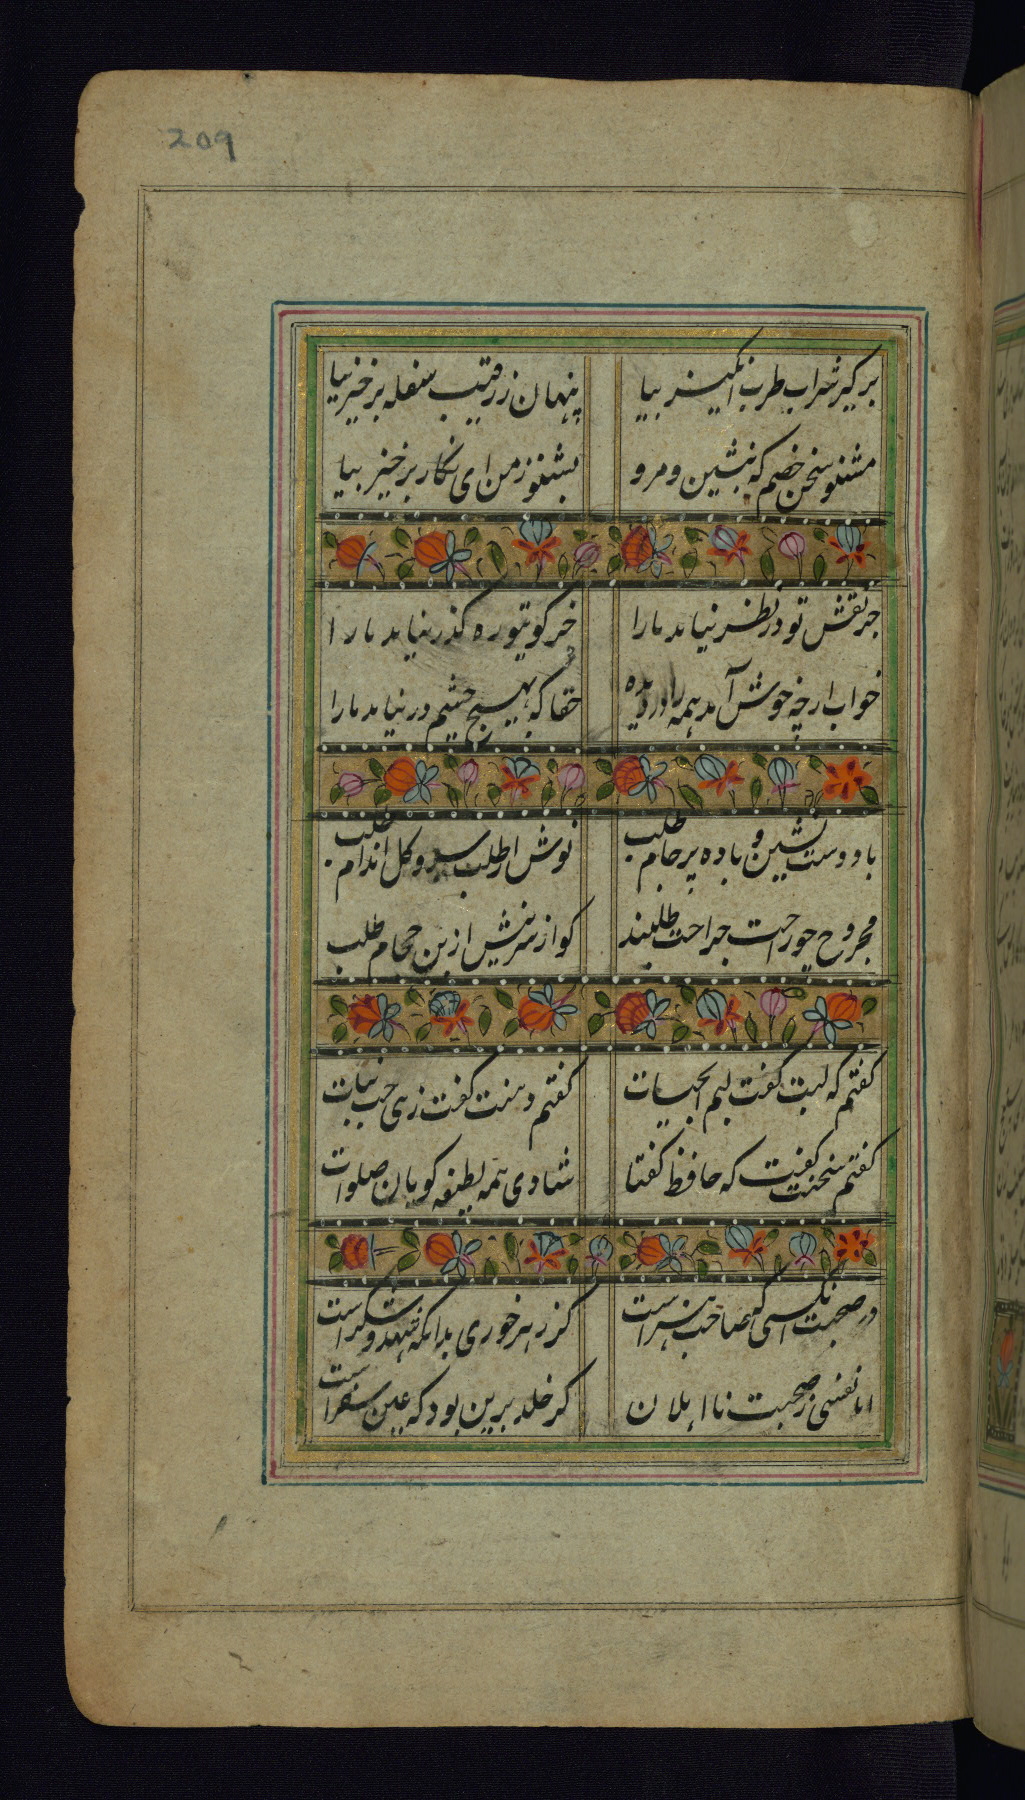 209
برگیر شراب طرب انگیز بیا پنهان ز رقیب سفله برخیز بیا
مشنو سخن خصم که بنشین و مرو بشنو ز من ای نگار برخیز بیا
جز نقش تو در نظر نیامد ما را جز کوی تو ره گذر نیامد ما را
خواب ارچه خوش آمد همه را در دیده حقا که بهیچ چشم در نیامد ما را
با دوست نشین و باده پر جام طلب نوش از طلب سرو گل اندام طلب
مجروح چو راحت جراحت طلبند گو از سر نیش ازین حجام طلب
گفتم که لبت گفت لبم آبحیات گفتم دهنت گفت زهی حب نبات
گفتم سخنت گفت که حافظ گفتا شادی همه لطیفه گویان صلوات
در صحبت آنکسی که صاحب هنر است گر زهر خوری بدانکه شهد و شکر است
اما نفسی ز صحبت نااهلان گر خلد برین بود که عین سقر است